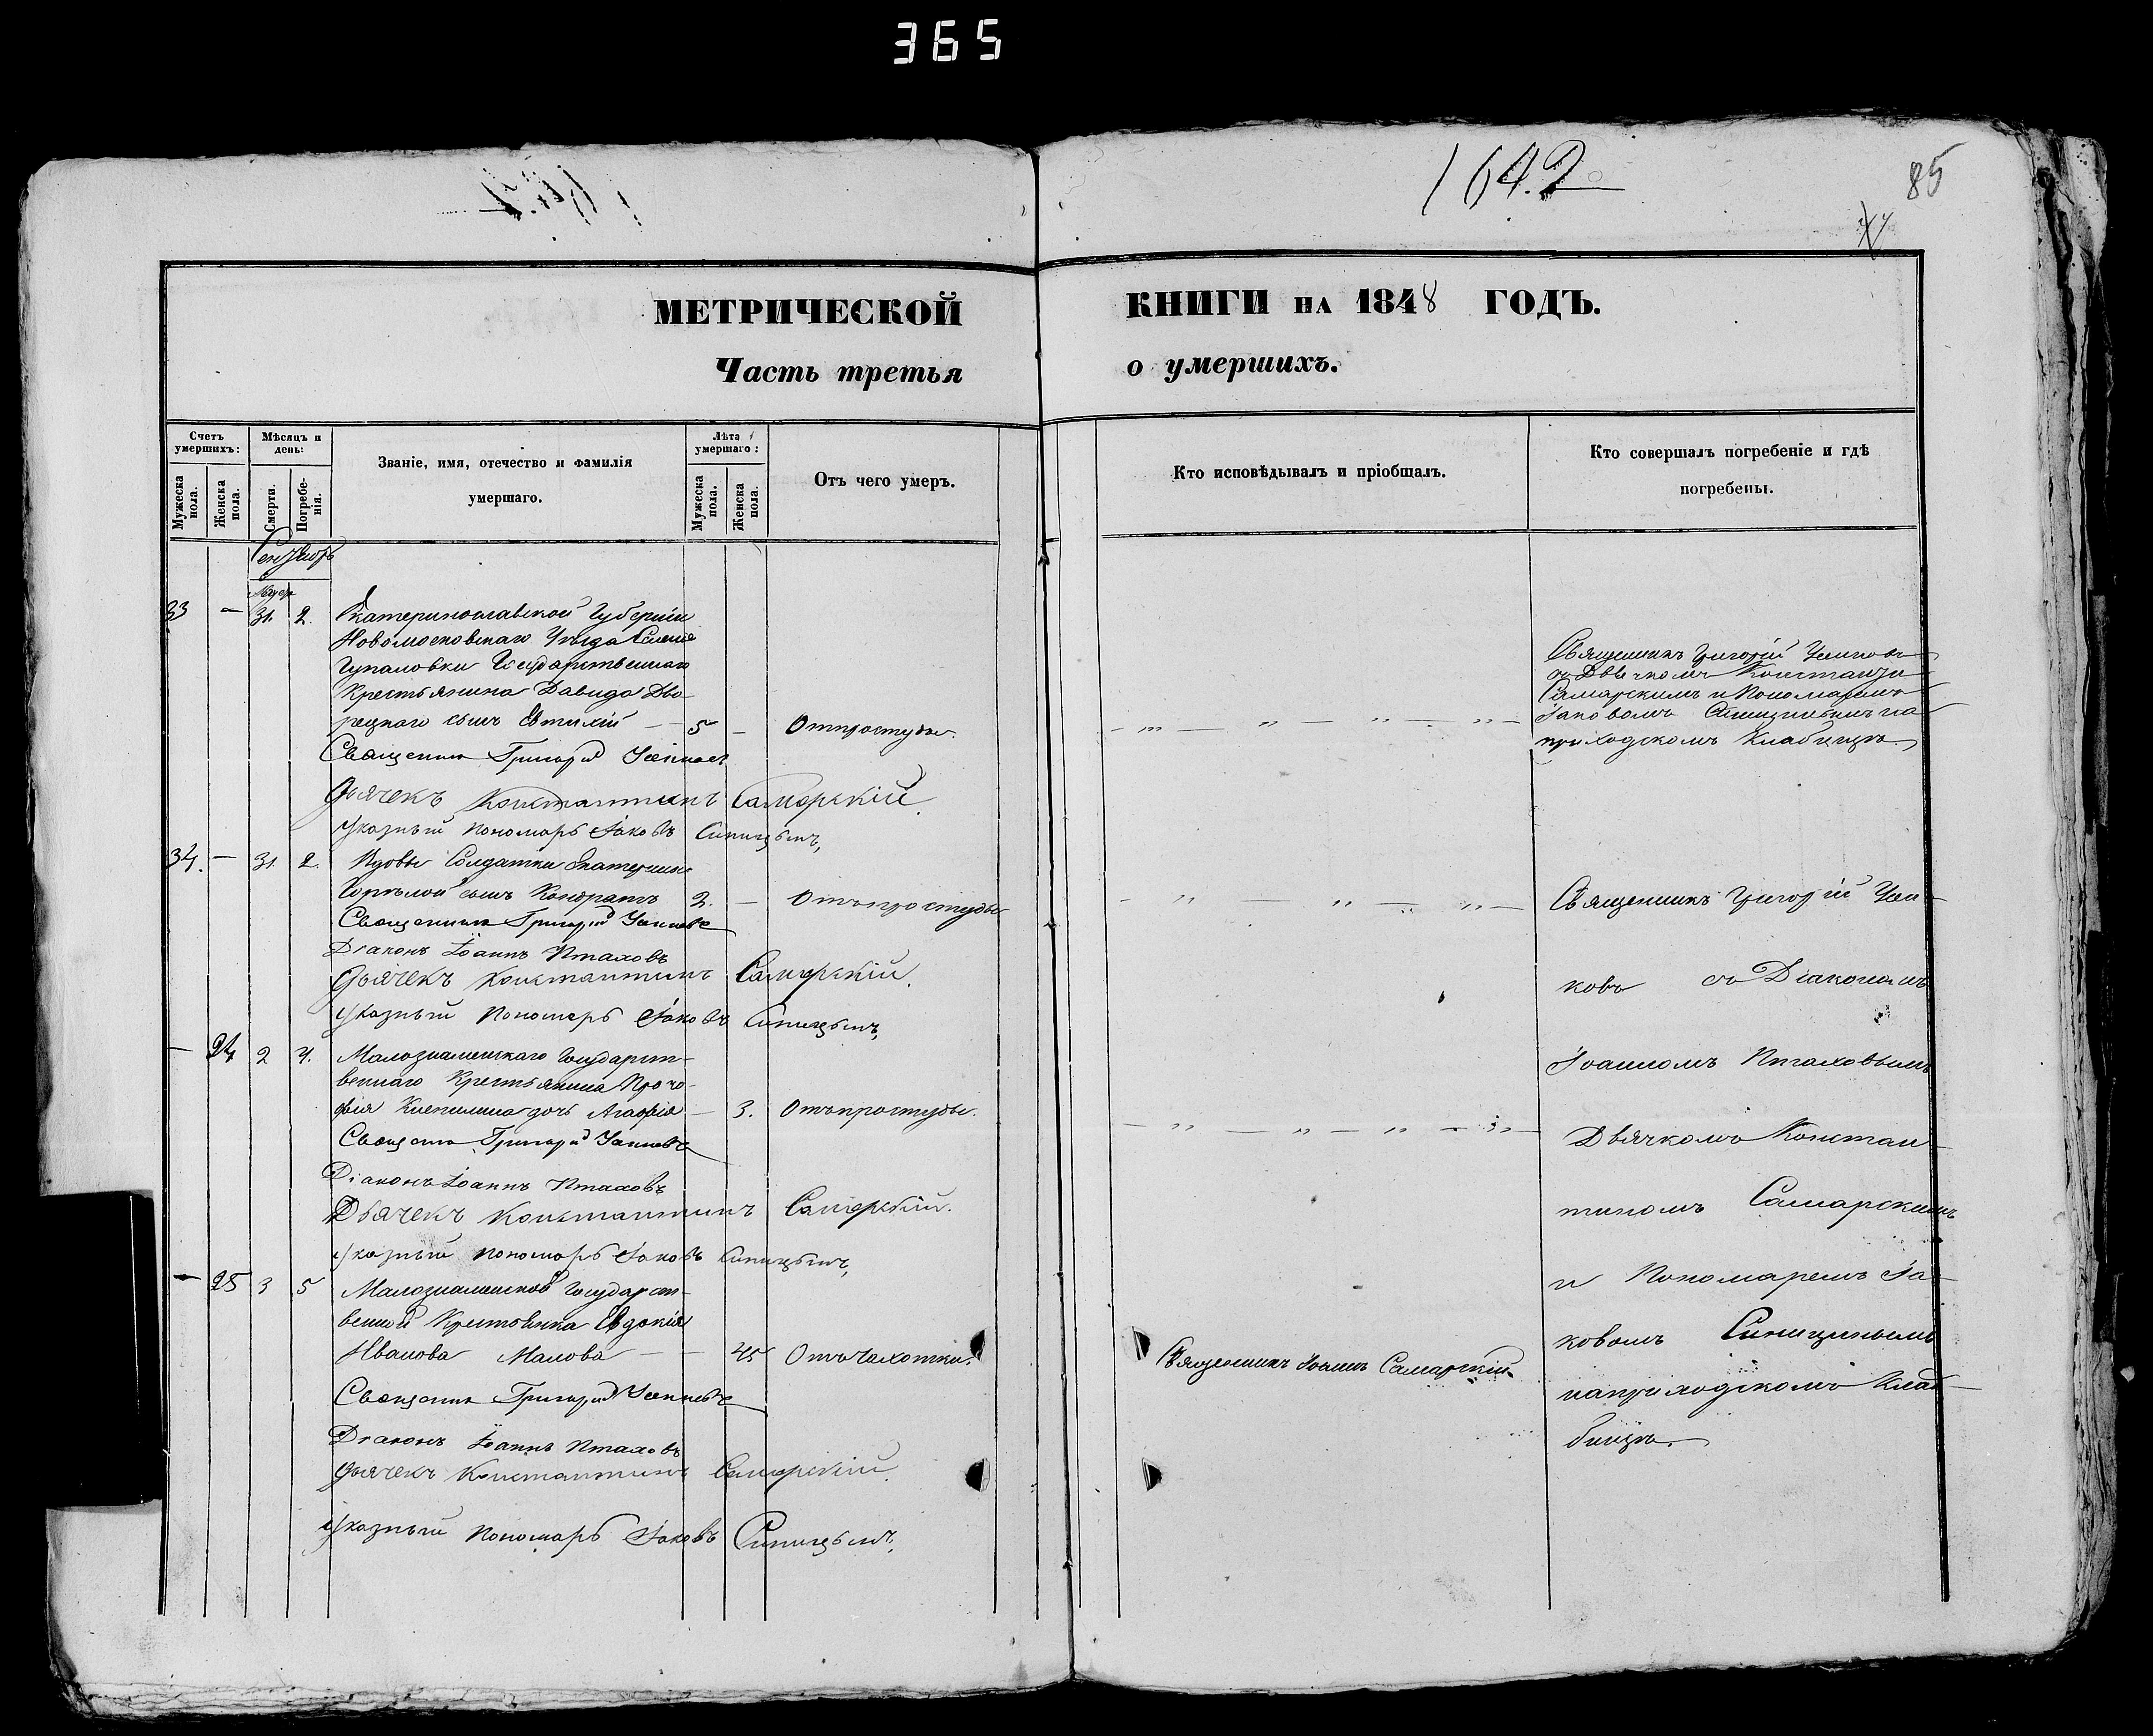 365
1642
85
МЕТРИЧЕСКОЙ
КНИГИ НА 1848 ГОДЪ.
Часть третья
о умершихъ.
Счетъ умершихъ:
Мѣсяцъ и день:
Званіе, имя, отечество и фамилія умершаго.
Лѣта умершаго:
Отъ чего умеръ.
Кто исповѣдывалъ и пріобщалъ.
Кто совершалъ погребеніе и гдѣ погребены.
Мужеска пола.
Женска пола.
Смерти.
Погребенія.
Мужеска пола.
Женска пола.
Сентябрь
33 — 31. 2. Екатеринославской Губерніи
Новомосковскаго Уѣзда Селенія
Чупаловки Государственнаго
Крестьянина Давида Дво-
рецкаго сынъ Евтихій — 5 — Отпростуды.
Священникъ Григорій
Дьячекъ Константинъ Самарскій
Указный Пономарь Іаковъ Синицынъ,
Священникъ Григорій
съ Дьячкомъ Константи
Самарскимъ и Пономаремъ
Іаковомъ Синицинымъ на
приходскомъ Кладбищѣ.
34. — 31. 2. Вдовы Солдатки Екатерины
сынъ Кондратъ 2. — Отъпростуды
Священникъ Григорій
Діаконъ Іоаннъ Птаховъ
Дьячекъ Константинъ Самарскій.
Указный Пономарь Іаковъ Синицынъ,
— 24 2 4. Малознаменскаго Государст-
веннаго Крестьянина Проко-
фія дочь Агафія — 3. Отъпростуды.
Священникъ Григорій
Діаконъ Іоаннъ Птаховъ
Дьячекъ Константинъ Самарскій.
Указный Пономарь Іаковъ Синицынъ,
— 25 3 5 Малознаменская Государст-
венная Крестьянка Евдокія
Иванова Малова — — 45 Отъ Чахотки.
Священникъ Іоаннъ Самарскій
Священникъ Григорій
Діаконъ Іоаннъ Птаховъ
Дьячекъ Константинъ Самарскій.
Указный Пономарь Іаковъ Синицынъ.
Священникъ Григорій
ковъ съ Діакономъ
Іоанномъ Птаховымъ
Дьячкомъ Констан-
тиномъ Самарскимъ
и Пономаремъ Іа-
ковомъ Синицинымъ
наприходскомъ Клад-
бищѣ.